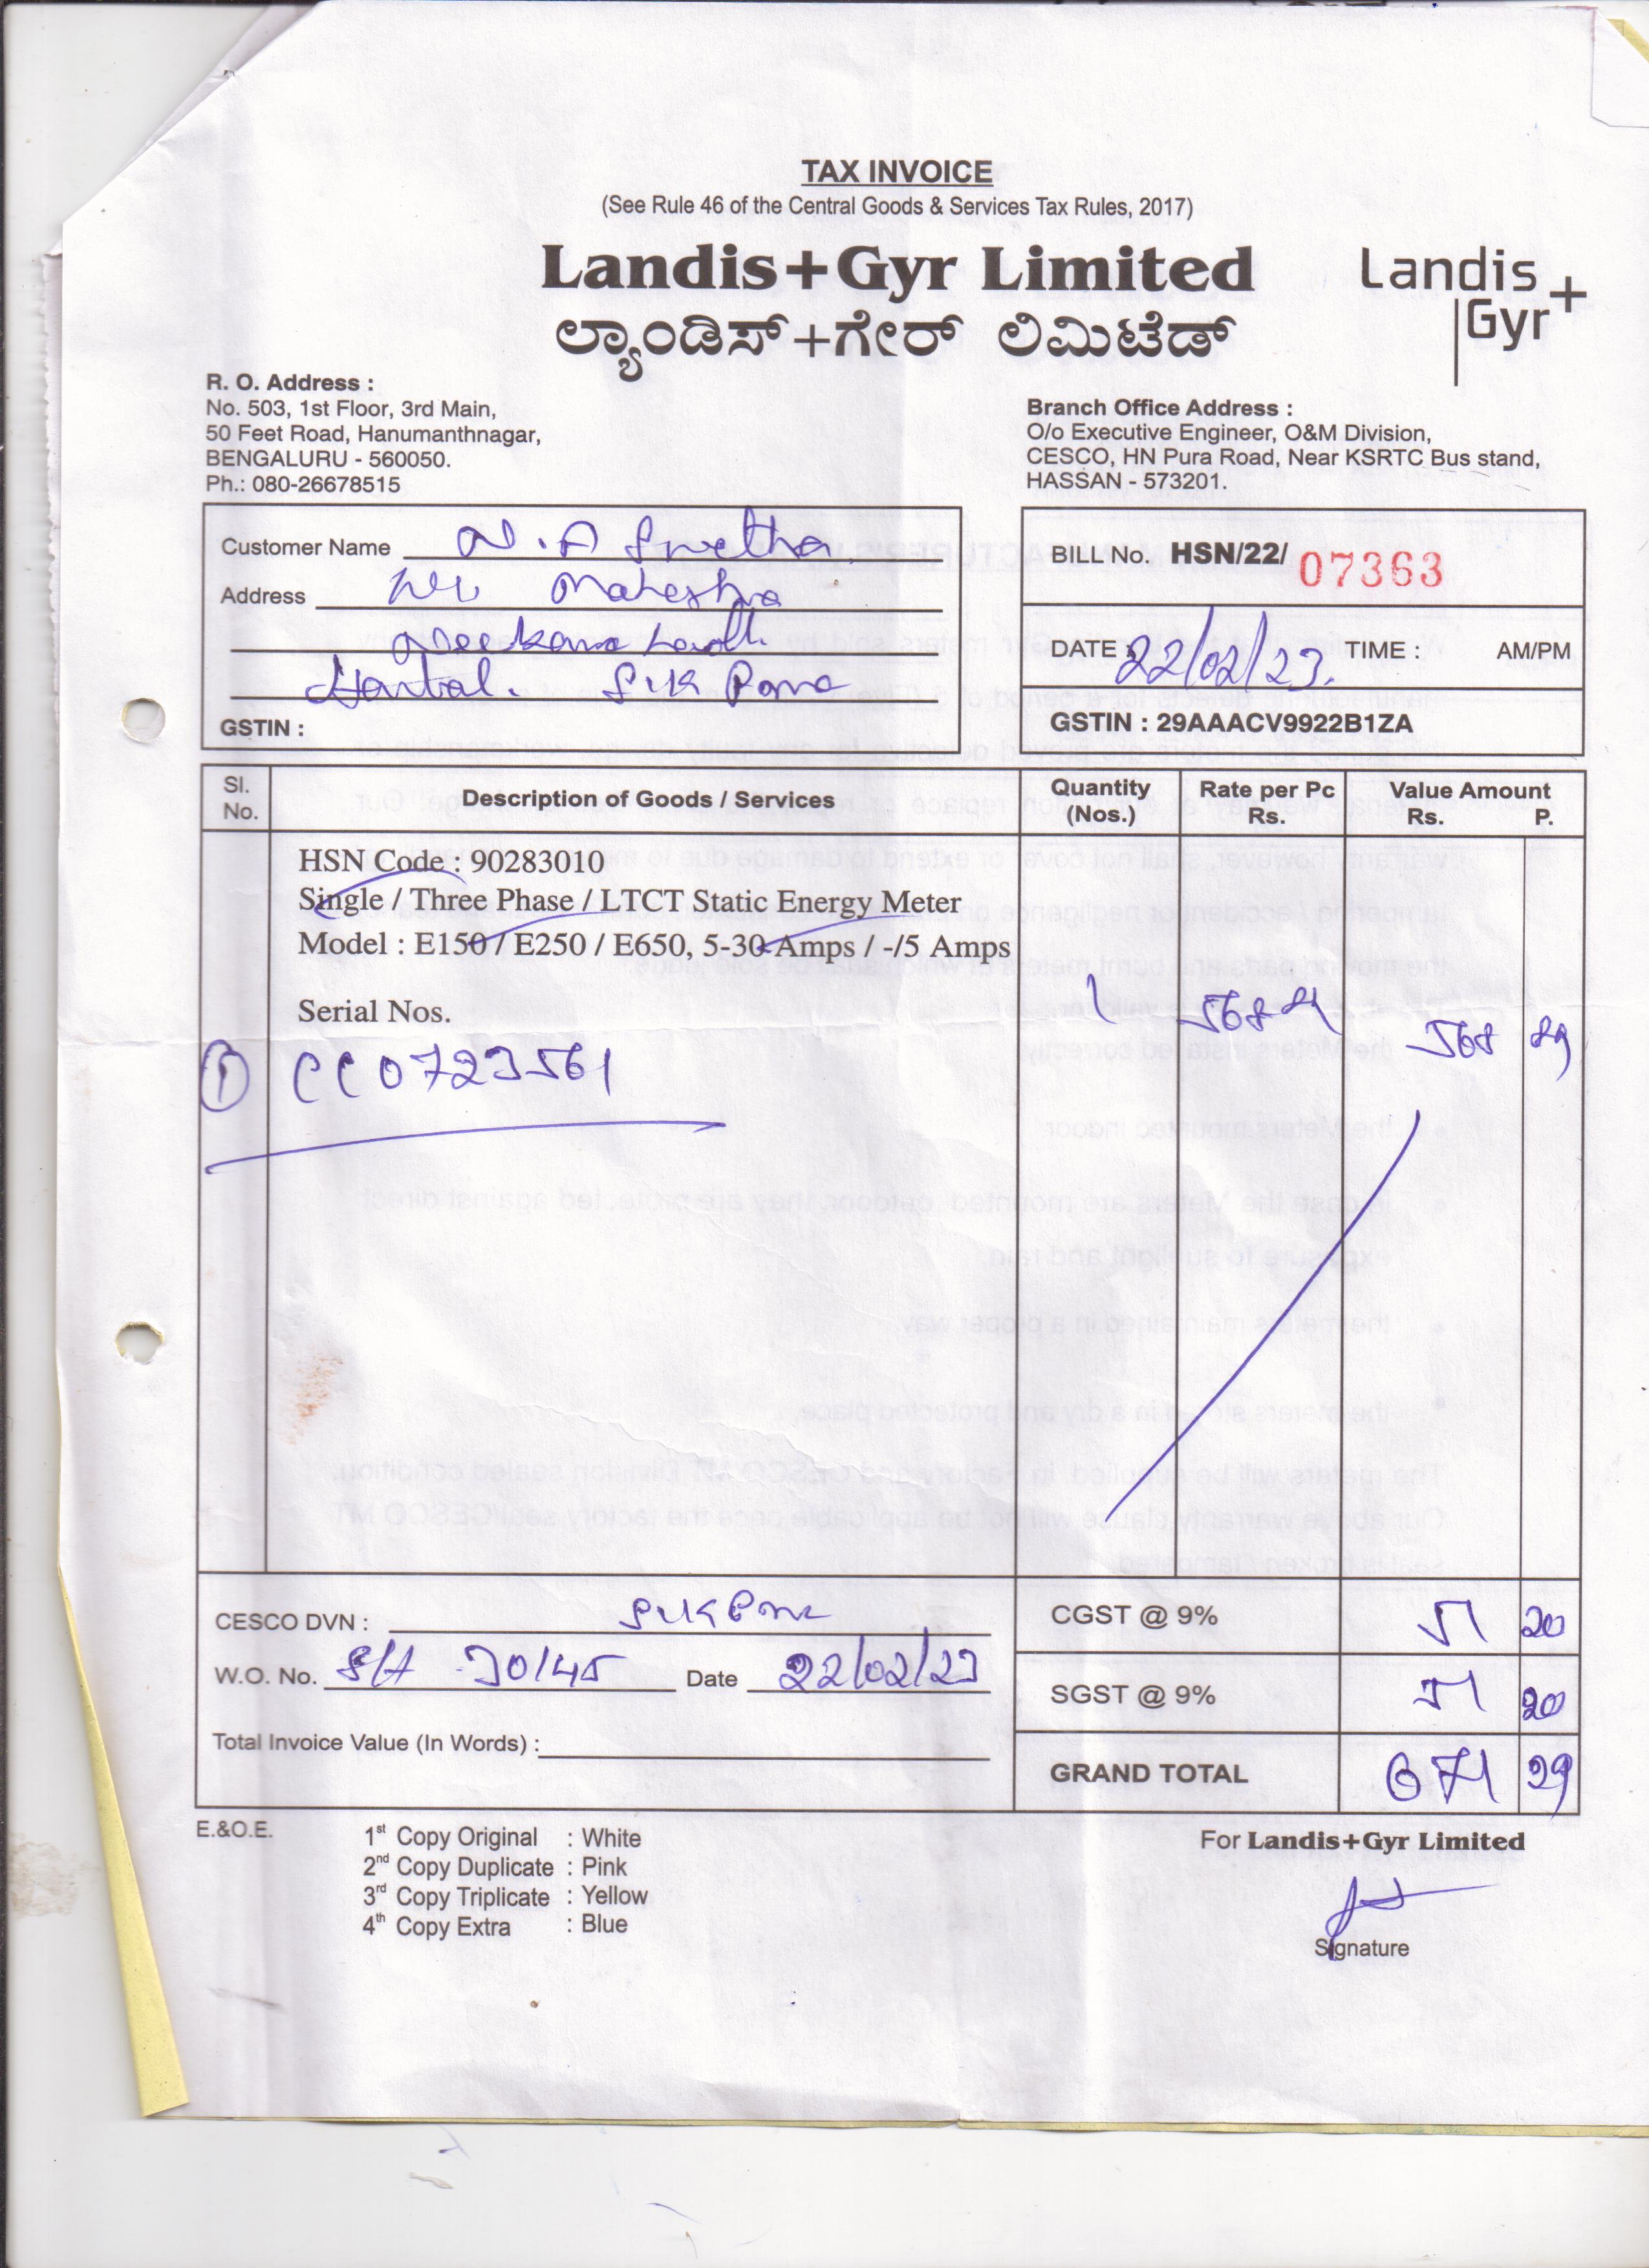 TAX INVOICE
(See Rule 46 of the Central Goods & Services Tax Rules, 2017)
Landis+Gyr Limited
ಲ್ಯಾಂಡಿಸ್+ಗೇರ್ ಲಿಮಿಟೆಡ್
Landis
Gyr+
R. O. Address :
No. 503, 1st Floor, 3rd Main,
50 Feet Road, Hanumanthnagar,
BENGALURU - 560050.
Ph.: 080-26678515
Branch Office Address :
O/o Executive Engineer, O&M Division,
CESCO, HN Pura Road, Near KSRTC Bus stand,
HASSAN - 573201.
Customer Name N.A Swetha
Address Mahesha
GSTIN :
BILL No. HSN/22/ 07363
DATE : 22/02/23. TIME : AM/PM
GSTIN : 29AAACV9922B1ZA
Sl. No. Description of Goods / Services Quantity (Nos.) Rate per Pc Rs. Value Amount Rs. P.
HSN Code : 90283010
Single / Three Phase / LTCT Static Energy Meter
Model : E150 / E250 / E650, 5-30 Amps / -/5 Amps
Serial Nos. 1 568 89 568 89
① CC0723561
CESCO DVN :
W.O. No. Date 22/02/23
Total Invoice Value (In Words) :
CGST @ 9% 51 20
SGST @ 9% 51 20
GRAND TOTAL 671 29
E.&O.E.
1st Copy Original : White
2nd Copy Duplicate : Pink
3rd Copy Triplicate : Yellow
4th Copy Extra : Blue
For Landis+Gyr Limited
Signature